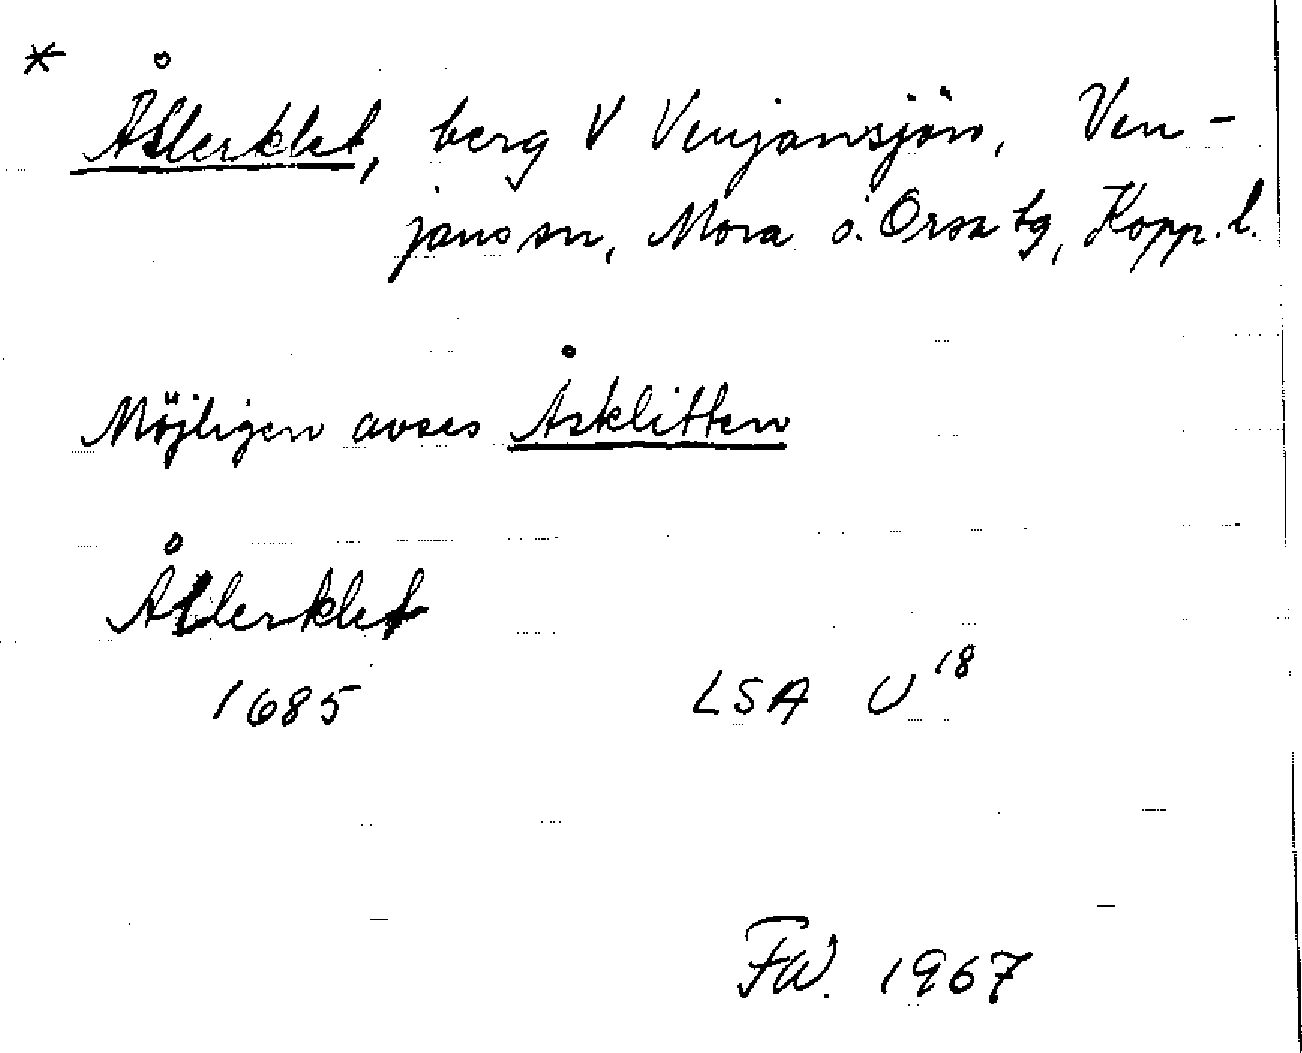 * Ållerklet, berg V Venjansjön, Ven-
jans sn, Mora o. Orsa tg, Kopp. l.
Möjligen avses Årklitten
Ållerklet
1685 LSA U18
FW. 1967